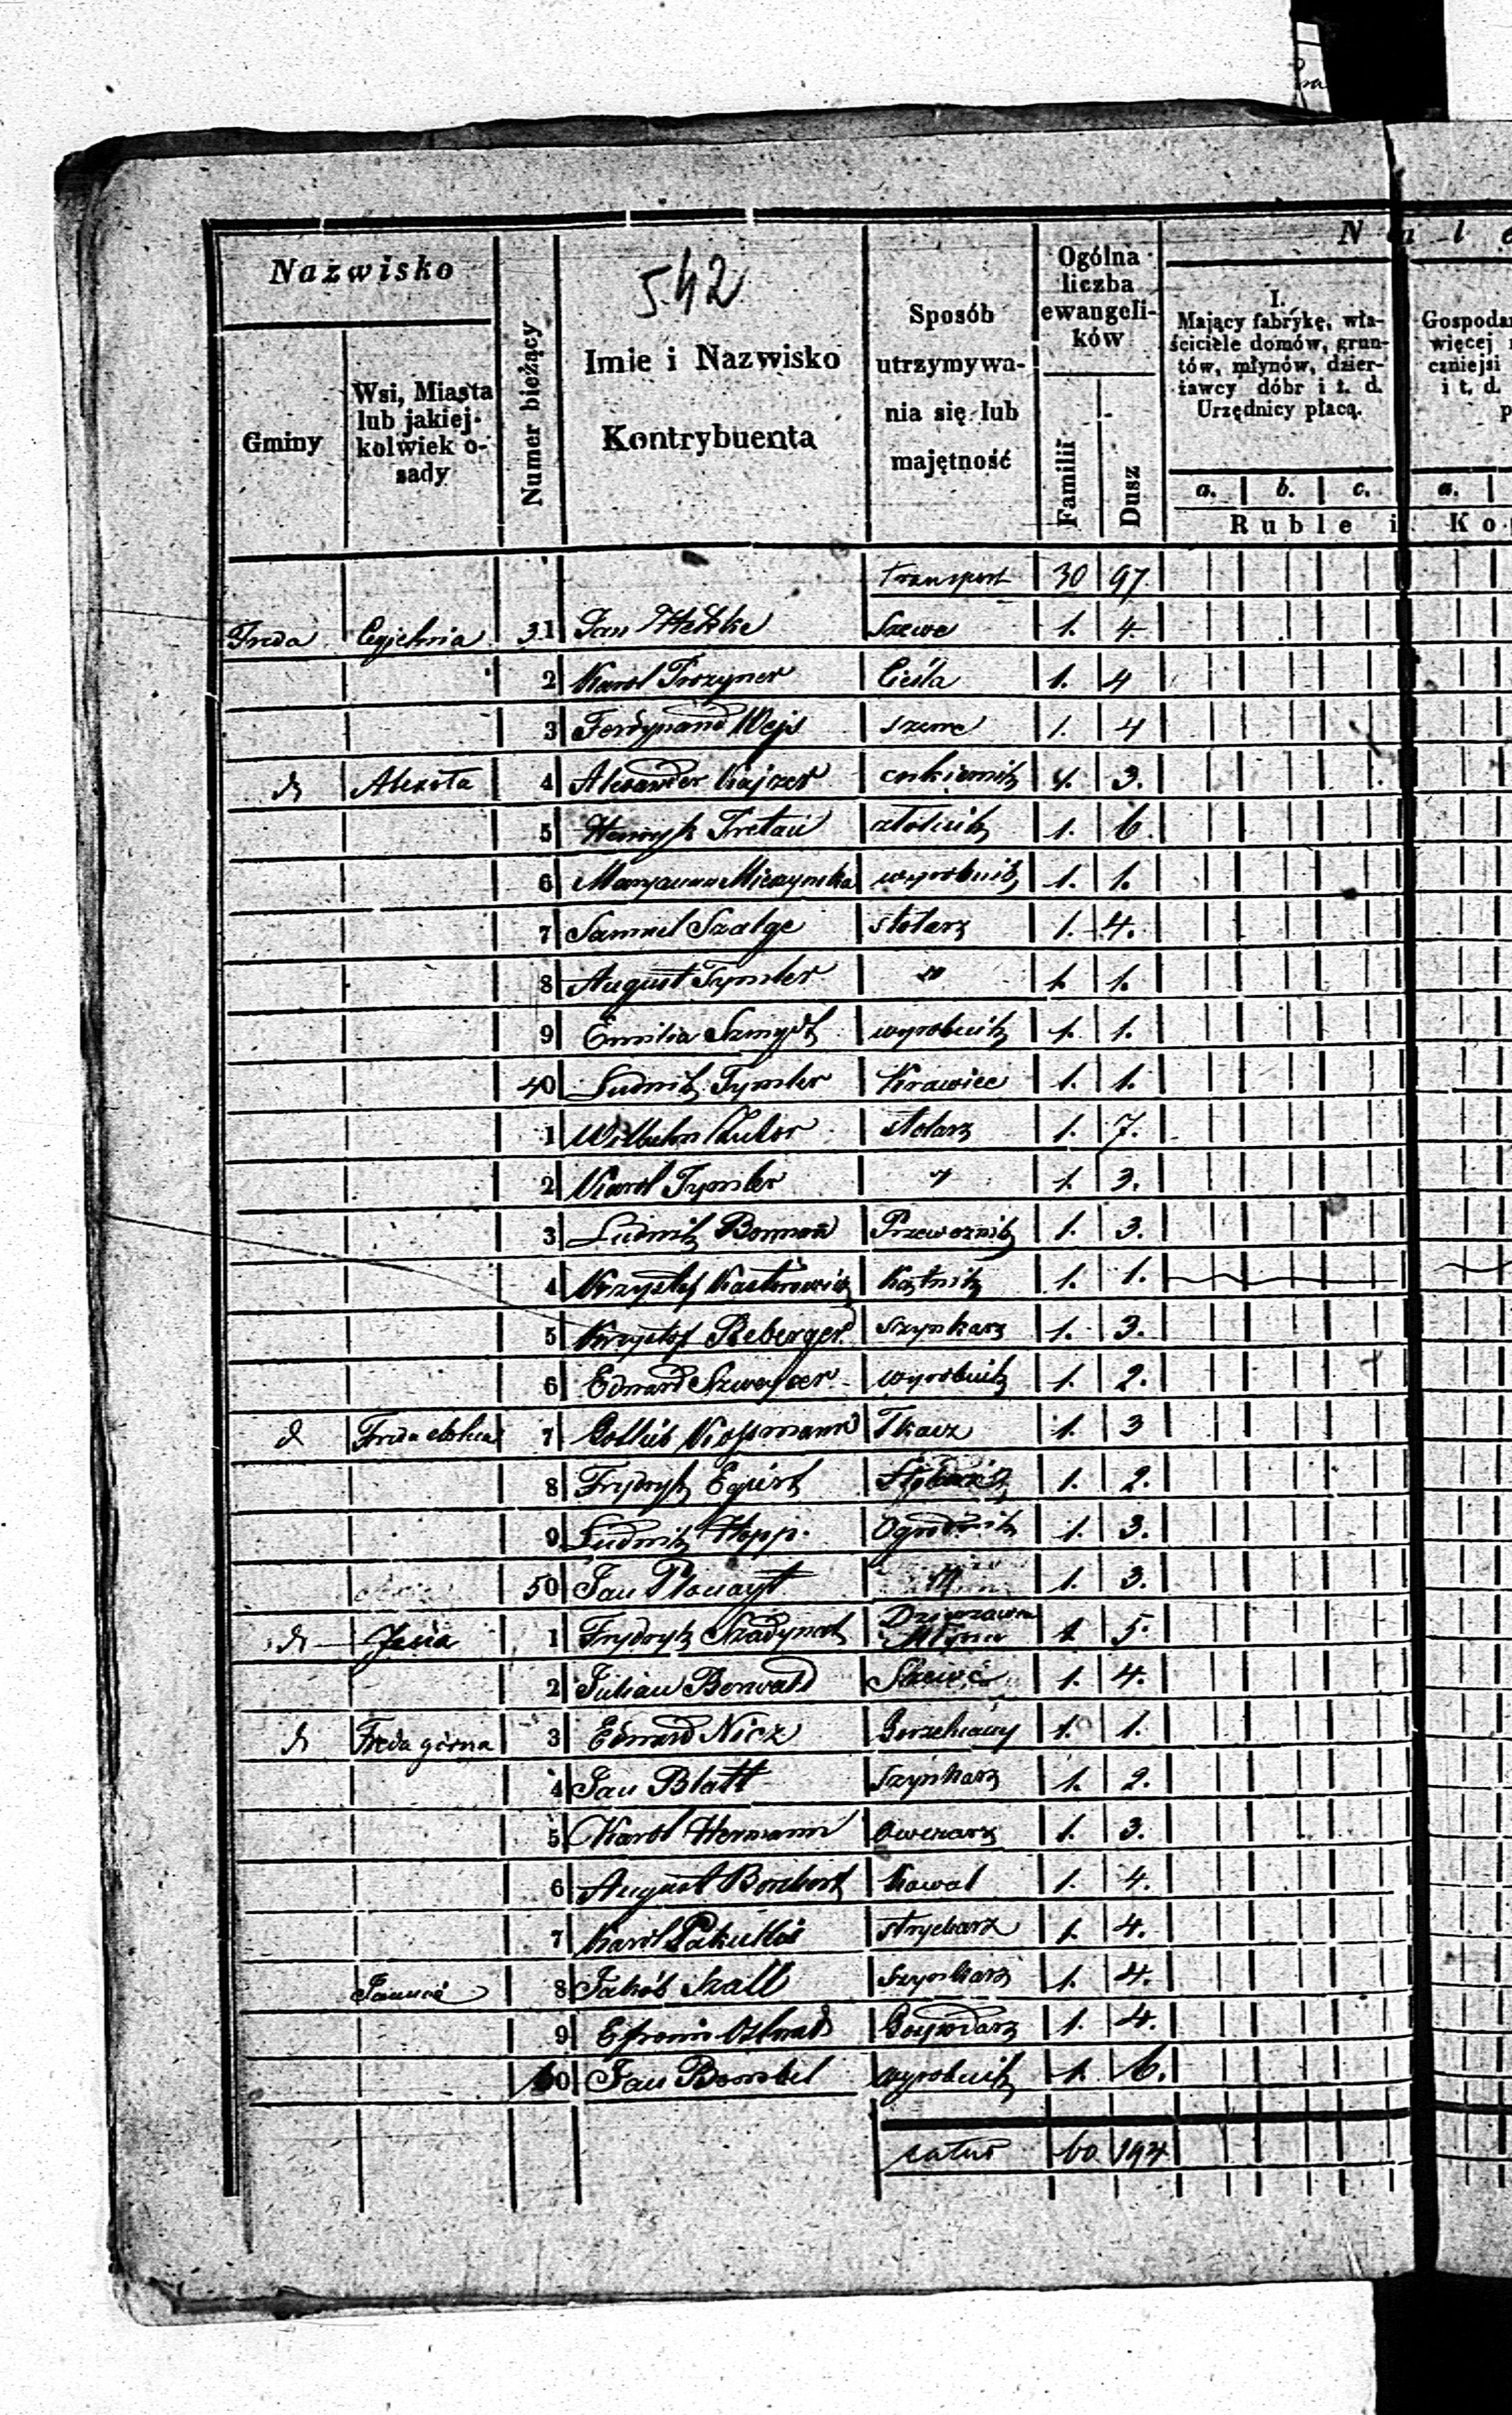 Nazwisko
Gminy
Wsi, Miasta
lub jakiej-
kolwiek o-
sady
Numer bieżący
542
Imie i Nazwisko
Kontrybuenta
Sposób
utrzymywa-
nia się lub
majętność
Ogólna
liczba
ewangeli-
ków
Familii
Dusz
N a l e
I.
Mający fabrykę, wła-
ściciele domów, grun-
tów, młynów, dzier-
żawcy dóbr i t. d.
Urzędnicy płacą.
a. b. c.
Ruble i Ko
Gospoda
więcej
czniejsi
i t. d.
p
a.
transport 30 97
Freda Cegielnia 31 Jan Szewc 1. 4
2 Karol Cieśla 1. 4
3 Ferdynand Wejs szewc 1. 4
d Alexota 4 Alexander Kajzer cukiernik 1. 3.
5 Henryk Tretau złotnik 1. 6.
6 Maryanna wyrobnik 1. 1.
7 Samuel Szalge stolarz 1. 4.
8 August Tymler " 1. 1.
9 Emilia Szmydt wyrobnik 1. 1.
40 Ludwik Tymler Krawiec 1. 1.
1 Wilhelm stolarz 1. 7.
2 Karol Tymler " 1. 3.
3 Ludwik Borman Przewoźnik 1. 3.
4 Krzysztof Kasterowicz Kątnik 1. 1.
5 Krzysztof Reberger szynkarz 1. 3.
6 Edward Szwejcer wyrobnik 1. 2.
d Freda 7 Gotlib Kossmann Tkacz 1. 3
8 Frydryk Egiert 1. 2.
9 Ludwik Hopp. Ogrodnik 1. 3.
50 Jan 1. 3.
d Jesia 1 Frydryk Szadynat Dzierżawca
Młyna 1 5.
2 Julian Berwald Szewc 1. 4.
d Freda górna 3 Edward Nicz Gorzelniany 1. 1.
4 Jan Blatt Szynkarz 1. 2.
5 Karol Hermann Owczarz 1. 3.
6 August Borchert Kowal 1. 4.
7 Karol strycharz 1. 4.
8 Jakób Szall Szynkarz 1. 4.
9 Gospodarz 1. 4.
60 Jan Bombel wyrobnik 1. 6.
Latus 60 194